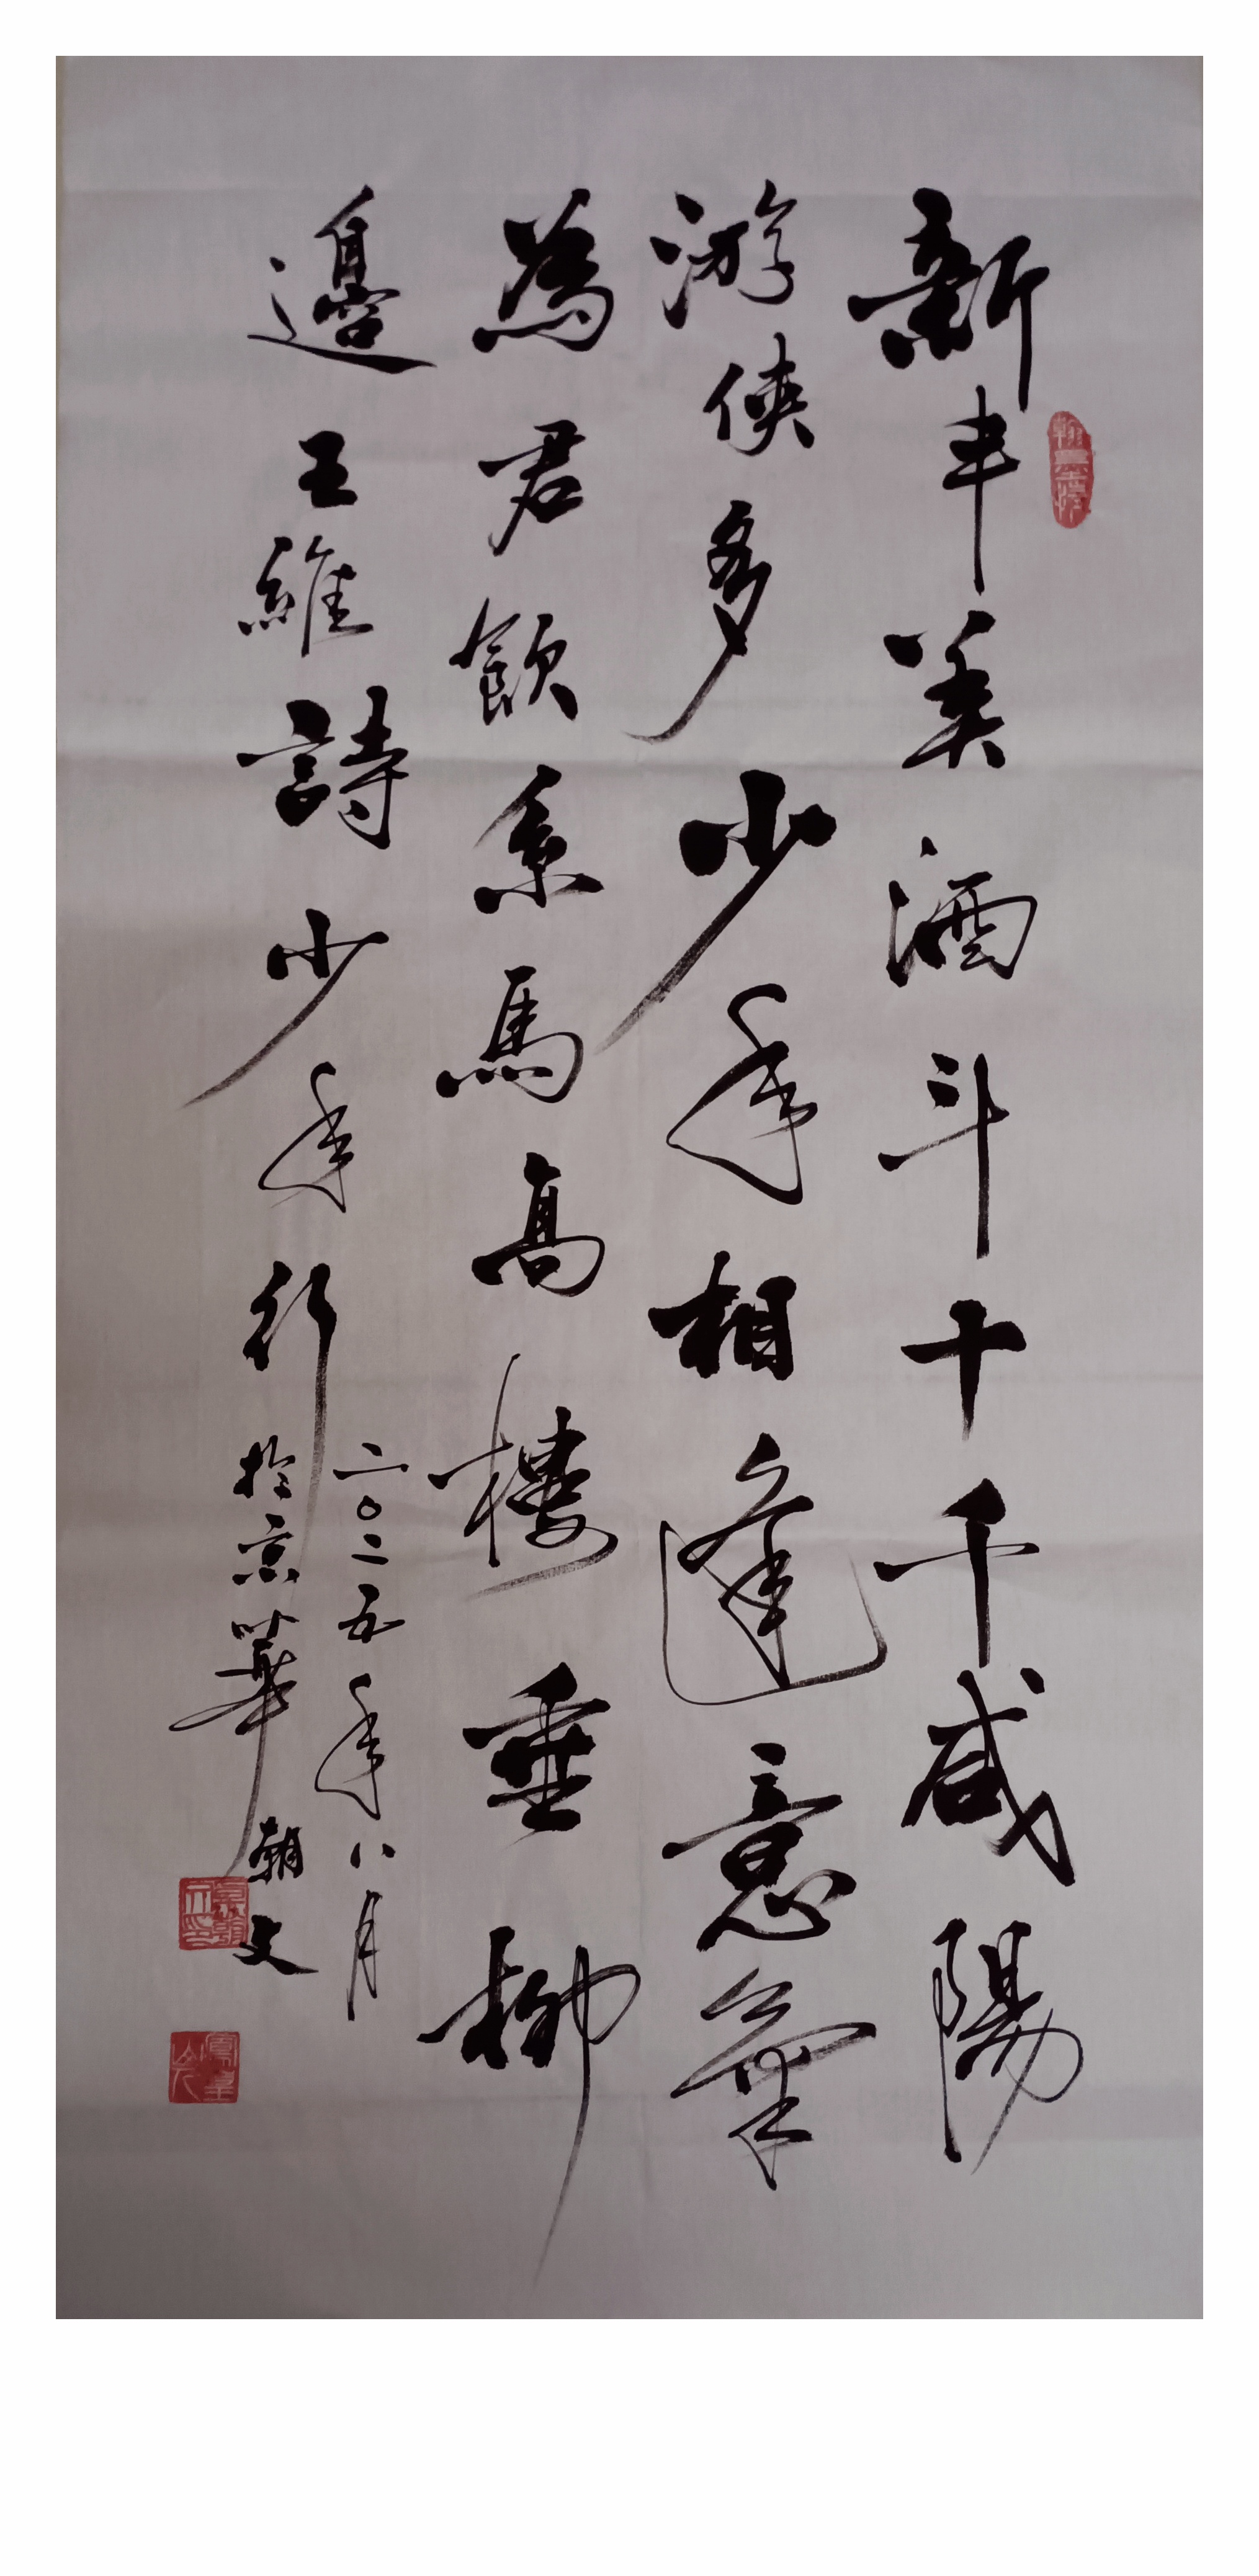 新丰美酒斗十千咸陽
游侠多少年相逢意氣
為君飲系馬高樓垂柳
邉王維詩少年行
二〇二五年八月
於京華朝文